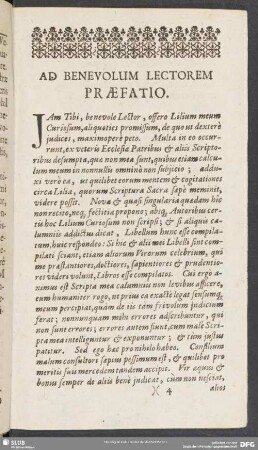 AD BENEVOLUM LECTOREM
PRÆFATIO.
JAm Tibi, benevole Lector, offero Lilium meum
Curiosum, aliquoties promissum, de quo ut dexterè
judices, maximoperè peto. Multa in eo occur-
runt, ex veteris Ecclesiæ Patribus & aliis Scripto-
ribus desumpta, qua non mea sunt, quibus etiam calcu-
lum meum in nonnullis omninò non subjitio; ad-
duxi verò ea, ut quilibet eorum mentem & cogitationes
circa Lilia, quorum Scriptura Sacra sæpè meminit,
videre possit. Nova & quasi singularia quædam hic
non recito, neq; fictitia propono: abiq; Autoribus cer-
tis hoc Lilium Curiosum non scripsi; & si aliquis ca-
lumniis addictus dicat, Libellum hunc esse compila-
tum, huic respondeo: Si hic & alii mei Libelli sint com-
pilati sciant, etiam aliorum Virorum celebrium, qui
me præstantiores, doctiores, sapientiores & prudentio-
res videri volunt, Libros esse compilatos. Cui ergo a-
nimus est Scripta mea calumniis non levibus afficere,
eum humaniter rogo, ut prius ea exactè legat sensumq;
meum percipiat, quàm de iis tàm frivolum judicium
ferat; nonnunquam mihi errores adscribuntur, qui
non sunt errores; errores autem fiunt, cum male Scri-
pta mea intelleguntur & exponuntur; & tùm justus
patitur. Sed ego hac pro nihilo habeo. Consilium
malum consultori sæpius pessimum est, & quilibet pro
meritis suis mercedem tandem accipit. Vir æquus &
bonus semper de aliis benè judicat, cùm non nesciat,
X 4
alios
SLUB
DFG